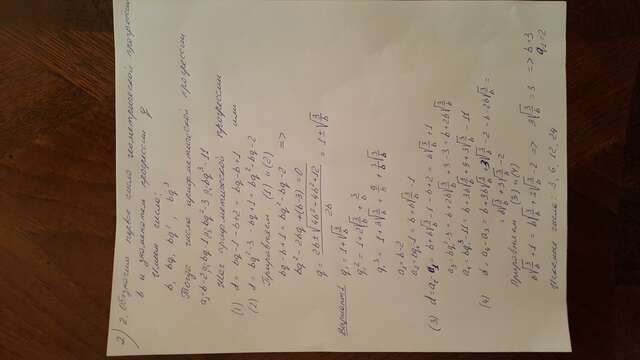 2) 2. Обозначим первое число геометрической прогрессии
b и знаменатель прогрессии q
Имеем числа:
b, bq, bq², bq³
Тогда числа арифметической прогрессии
a₁=b-2; bq-1; bq²-3; bq³-11
Шаг арифметической прогрессии
(1) d = bq-1-b+2 = bq-b+1 или
(2) d = bq²-3-bq+1 = bq²-bq-2
Приравняем (1) и (2)
bq-b+1 = bq²-bq-2 =>
bq²-2bq+(b-3)=0
q = 2b±√4b²-4b²+12 / 2b = 1±√3/b
Вариант 1
q₁ = 1+√3/b
q² = 1+2√3/b + 3/b
q³ = 1+3√3/b + 9/b + 3/b√3/b
a₁=b-2
a₂=bq-1=b+b√3/b-1
(3) d=a₂-a₁= b+b√3/b-1-b+2 = b√3/b+1
a₃=bq²-3=b+2b√3/b+3-3=b+2b√3/b
a₄=bq³-11=b+3b√3/b+9+3√3/b-11
(4) d=a₄-a₃=b+3b√3/b+3√3/b-2-b-2b√3/b=
=b√3/b+3√3/b-2
Приравняем (3) и (4)
b√3/b+1=b√3/b+3√3/b-2 => 3√3/b=3 => b=3
q=2
Искомые числа: 3, 6, 12, 24